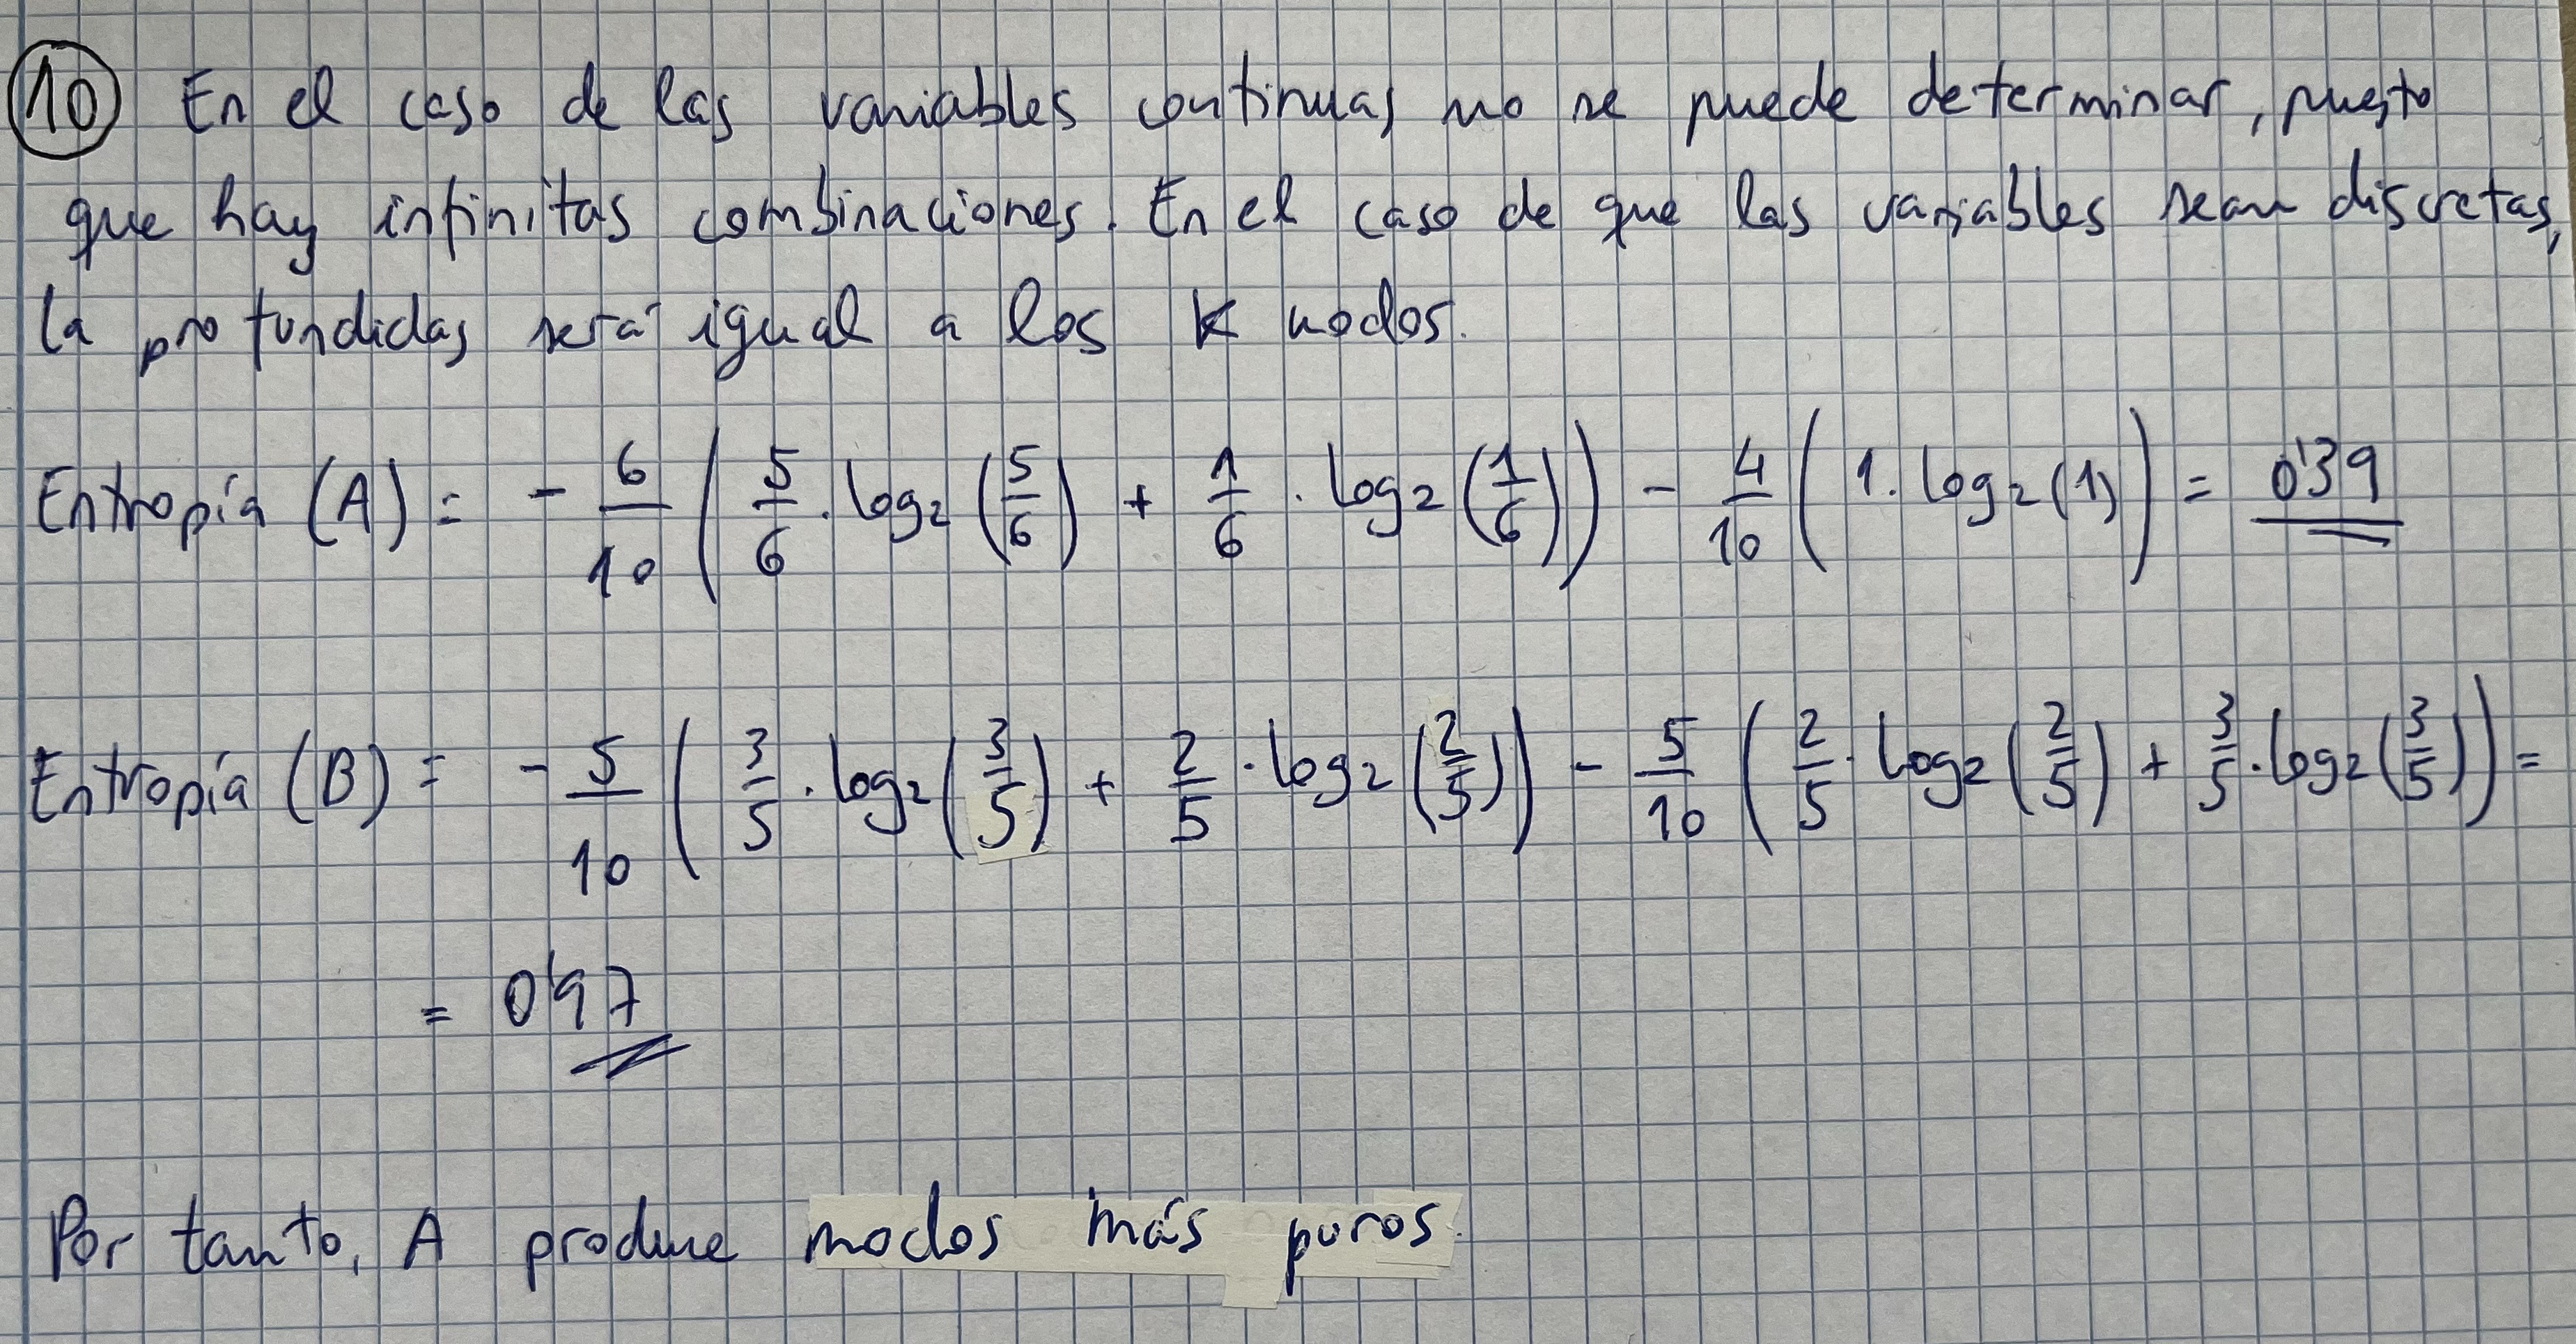 10 En el caso de las variables continuas no se puede determinar, puesto
que hay infinitas combinaciones. En el caso de que las variables sean discretas,
la profundidas será igual a los K nodos.
Entropía (A) = - 6/10 ( 5/6 · log₂ (5/6) + 1/6 · log₂ (1/6) ) - 4/10 ( 1 · log₂ (1) ) = 0'39
Entropía (B) = - 5/10 ( 3/5 · log₂ (3/5) + 2/5 · log₂ (2/5) ) - 5/10 ( 2/5 · log₂ (2/5) + 3/5 · log₂ (3/5) ) =
= 0'97
Por tanto, A produce nodos más puros.